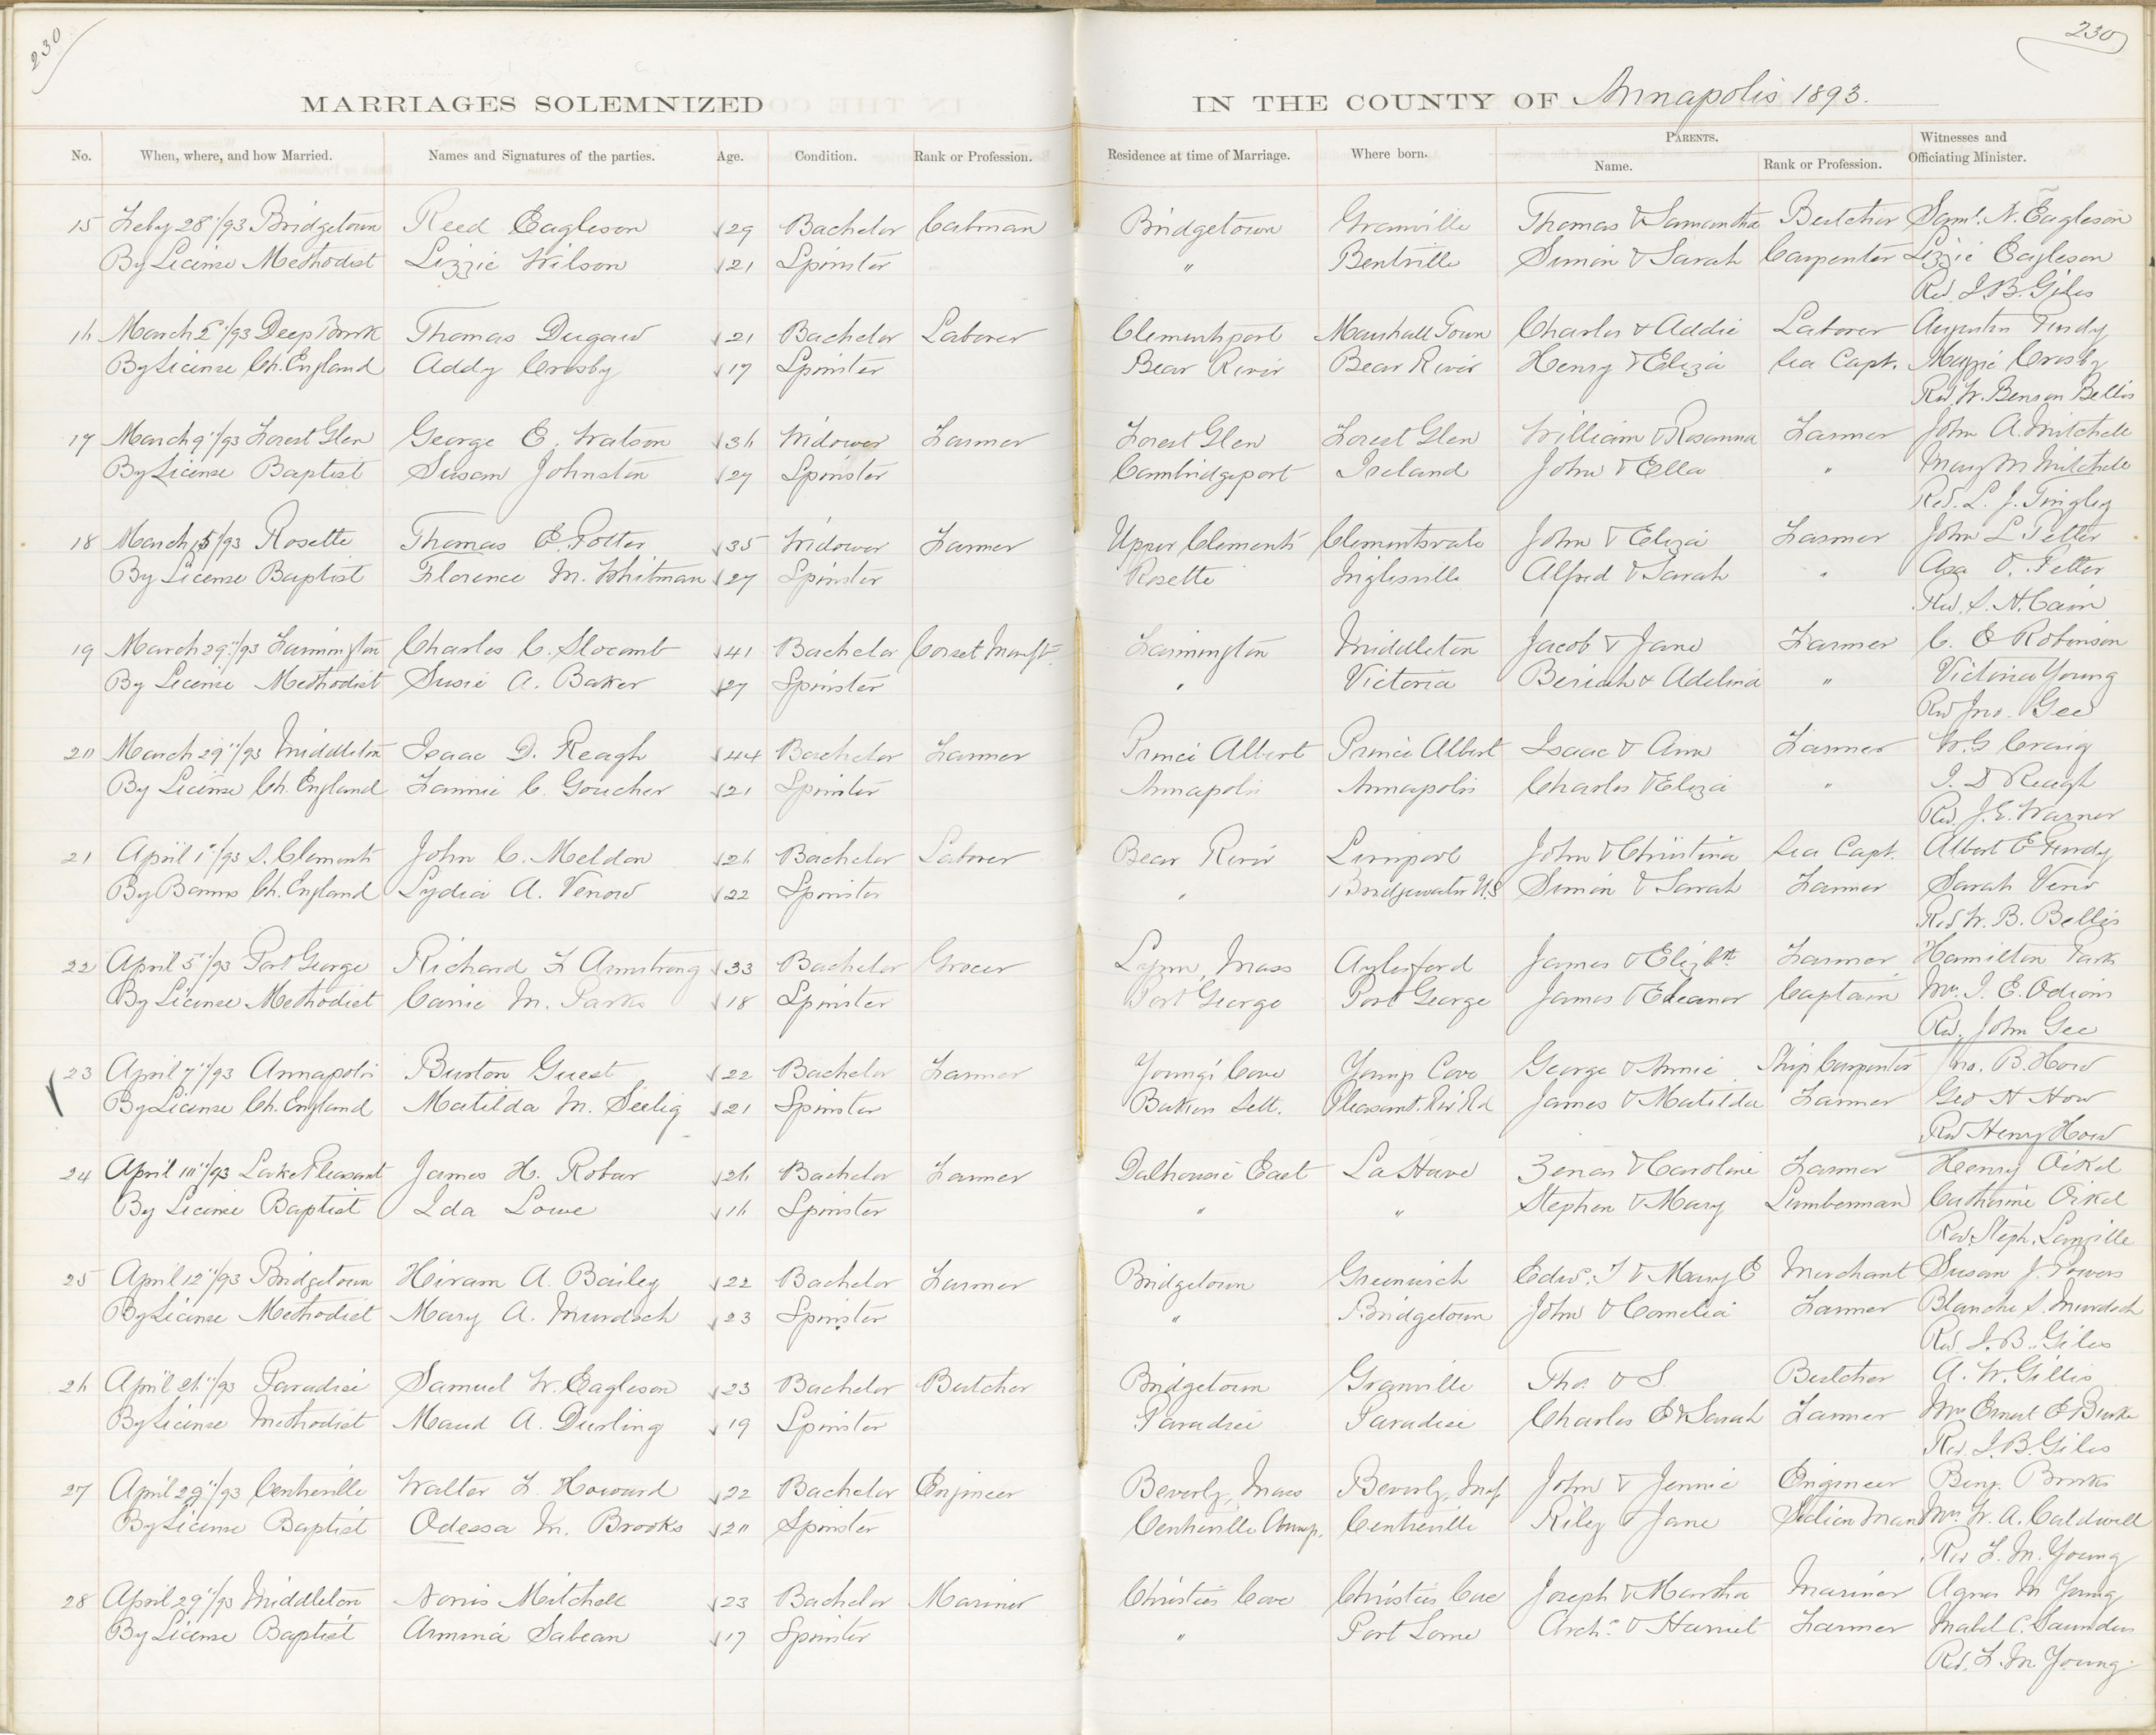 230
230
MARRIAGES SOLEMNIZED IN THE COUNTY OF Annapolis 1893.
No. When, where, and how Married. Names and Signatures of the parties. Age. Condition. Rank or Profession. Residence at time of Marriage. Where born. PARENTS. Name. Rank or Profession. Witnesses and Officiating Minister.
15 Feby 28"/93 Bridgetown Reed Eagleson 29 Bachelor Cabman Bridgetown Granville Thomas & Samantha Butcher Saml. N. Eagleson
By License Methodist Lizzie Wilson 21 Spinster " Bentville Simon & Sarah Carpenter Lizzie Eagleson
Rev. J. B. Giles
16 March 5"/93 Deep Brook Thomas Dugaw 21 Bachelor Laborer Clementsport Marshall Town Charles & Addie Laborer Purdy
By License Ch. England Addy Crosby 17 Spinster Bear River Bear River Henry & Eliza Sea Capt. Maggie Crosby
Rev. W. Benson Bellis
17 March 9"/93 Forest Glen George E. Watson 36 Widower Farmer Forest Glen Forest Glen William & Rosanna Farmer John A. Mitchell
By License Baptist Susan Johnston 27 Spinster Cambridgeport Ireland John & Ella " Mary M Mitchell
Rev. L. J. Tingley
18 March 15/93 Rosette Thomas E. Potter 35 Widower Farmer Upper Clements Clementsvale John & Eliza Farmer John L
By License Baptist Florence M. Whitman 27 Spinster Rosette Inglisville Alfred & Sarah " Asa
Rev. S. H. Cain
19 March 29"/93 Farmington Charles C. Slocomb 41 Bachelor Corset Manft. Farmington Middleton Jacob & Jane Farmer C. E Robinson
By License Methodist Susie A. Baker 27 Spinster " Victoria Beriah & Adelina " Victoria Young
Rev Jno. Gee
20 March 29"/93 Middleton Isaac D. Reagh 44 Bachelor Farmer Prince Albert Prince Albert Isaac & Ann Farmer W. G Craig
By License Ch. England Fannie C. Goucher 21 Spinster Annapolis Annapolis Charles & Eliza " I. D Reagh
Rev. J. E. Warner
21 April 1"/93 S. Clements John C. Meldon 26 Bachelor Laborer Bear River John & Christina Sea Capt. Albert E Purdy
By Banns Ch. England Lydia A. Venow 22 Spinster " Bridgewater N.S Simon & Sarah Farmer Sarah Veno
Rev W. B. Bellis
22 April 5"/93 Port George Richard F Armstrong 33 Bachelor Grocer Lynn, Mass Aylesford James & Elizbth Farmer Hamilton Parks
By License Methodist Carrie M. Parks 18 Spinster Port George Port George James & Eleanor Captain Mrs. J. E. Odiorn
Rev. John Gee
23 April 7"/93 Annapolis Burton Guest 22 Bachelor Farmer Young's Cove Youngs Cove George & Annie Ship Carpenter Jno. B. How
By License Ch. England Matilda M. Seelig 21 Spinster Sett. Pleasant. Riv Rd James & Matilda Farmer Geo H How
Rev Henry How
24 April 10"/93 Lake Pleasant James H. Robar 26 Bachelor Farmer Dalhousie East La Have Zenas & Caroline Farmer Henry Oikel
By License Baptist Ida Lowe 16 Spinster " " Stephen & Mary Lumberman Catherine Oikel
Rev. Steph. Langille
25 April 12"/93 Bridgetown Hiram A. Bailey 22 Bachelor Farmer Bridgetown Greenwich Edw. T & Mary E Merchant Susan J. Powers
By License Methodist Mary A. Murdoch 23 Spinster " Bridgetown John & Cornelia Farmer Blanche S. Murdoch
Rev. J. B. Giles
26 April 26"/93 Paradise Samuel W. Eagleson 23 Bachelor Butcher Bridgetown Granville Tho. & S Butcher A. W. Gillis
By License Methodist Maud A. Durling 19 Spinster Paradise Paradise Charles E & Sarah Farmer Mrs Ernest E Burke
Rev. J. B. Giles
27 April 29"/93 Centreville Walter F. Howard 22 Bachelor Engineer Beverly, Mass Beverly, Mass John & Jennie Engineer Benj. Brooks
By License Baptist Odessa M. Brooks 20 Spinster Centreville Annap. Centreville Riley & Jane Section Man Mrs. W. A. Caldwell
Rev F. M. Young
28 April 29"/93 Middleton Norris Mitchell 23 Bachelor Mariner Christies Cove Christies Cove Joseph & Martha Mariner Agnes M Young
By License Baptist Armina Sabean 17 Spinster " Port Lorne Arch. & Harriet Farmer Mabel C. Saunders
Rev. F. M Young